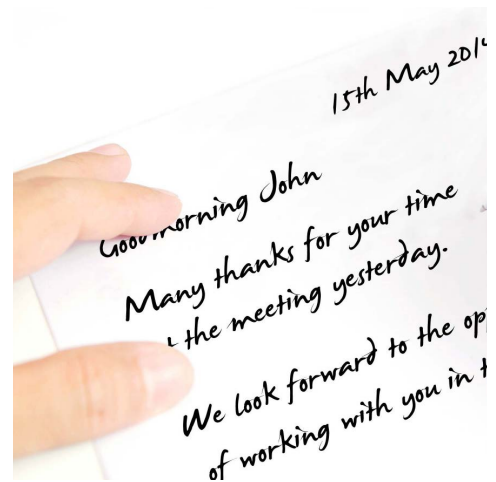 15th May 2014
Good morning John
Many thanks for your time
the meeting yesterday.
We look forward to the
of working with you in